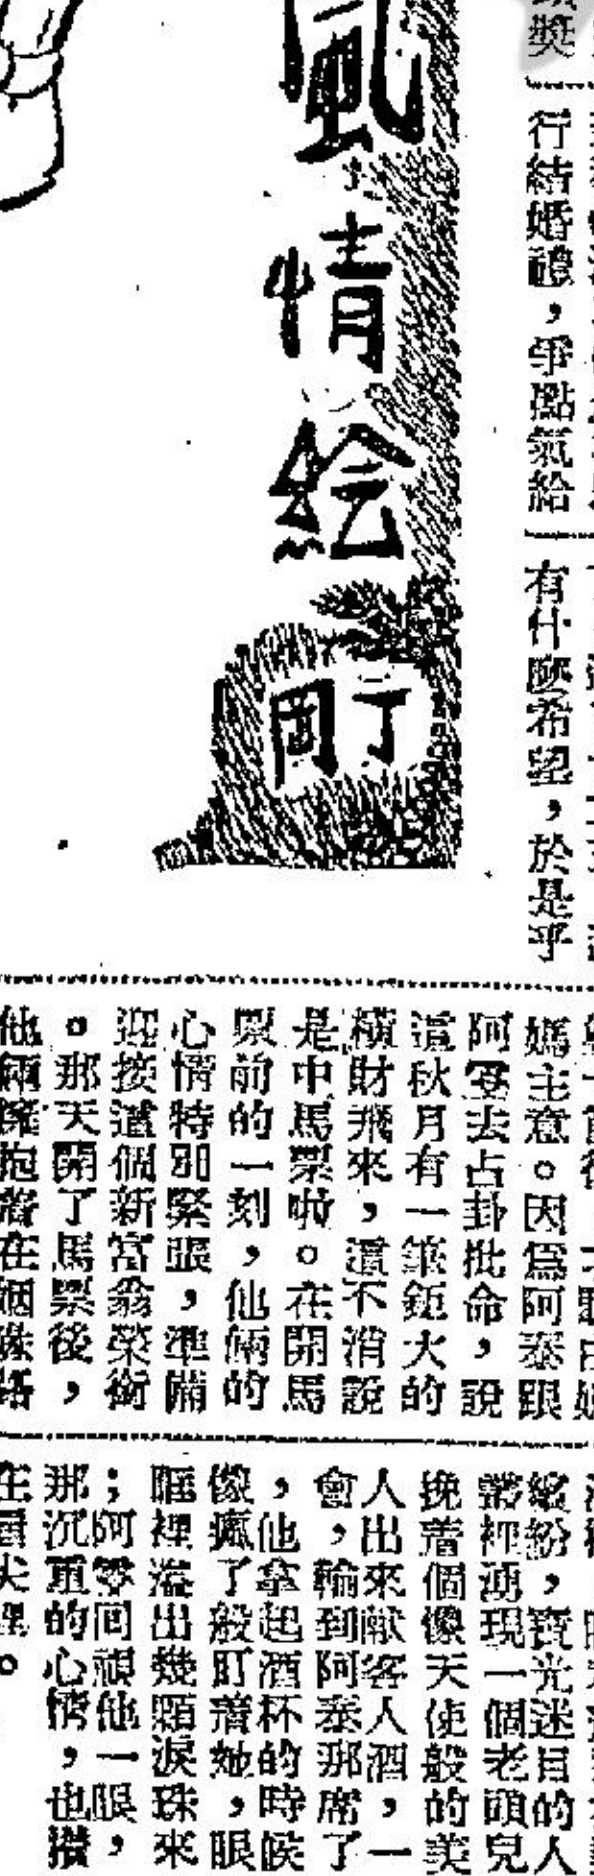 獎
行結婚禮，爭點氣給
有什麼希望，於是乎
風情絵
丁岡
媽主意。因爲阿泰跟
阿零去占卦批命，說
這秋月有一筆鉅大的
橫財飛來，還不消說
是中馬票啦。在開馬
票前的一刻，他倆的
心情特別緊張，準備
迎接這個新富翁榮銜
。那天開了馬票後，
他倆擁抱着在
繽紛，寶光迷目的人
叢裡湧現一個老頭兒
挽着個像天使般的美
人出來献客人酒，一
會，輪到阿泰那席了
，他拿起酒杯的時候
像瘋了般盯着她，眼
眶裡溢出幾顆淚珠來
；阿零回顧他一眼，
那沉重的心情，也攢
在眉尖裡。